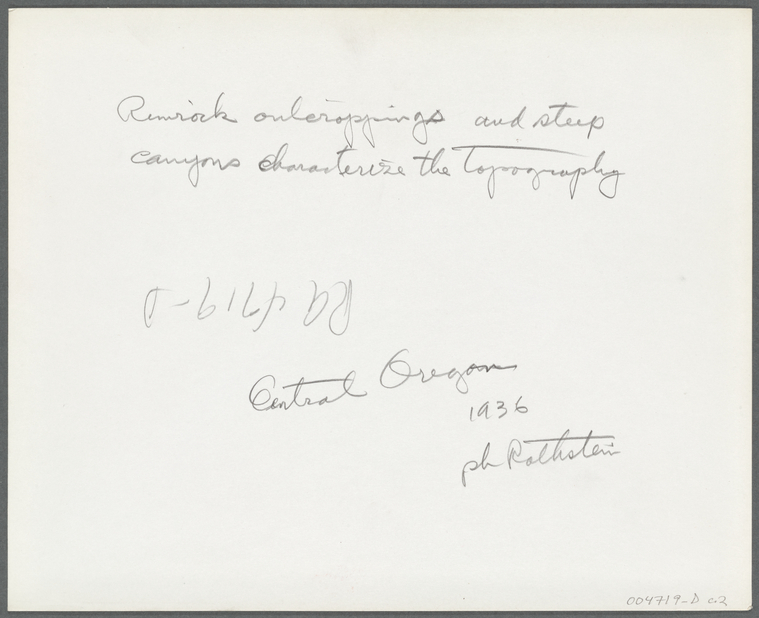 Rimrock outcroppings and steep
canyons characterize the topography
RA 4719-D
Central Oregon
1936
ph Rothstein
004719-D c.2